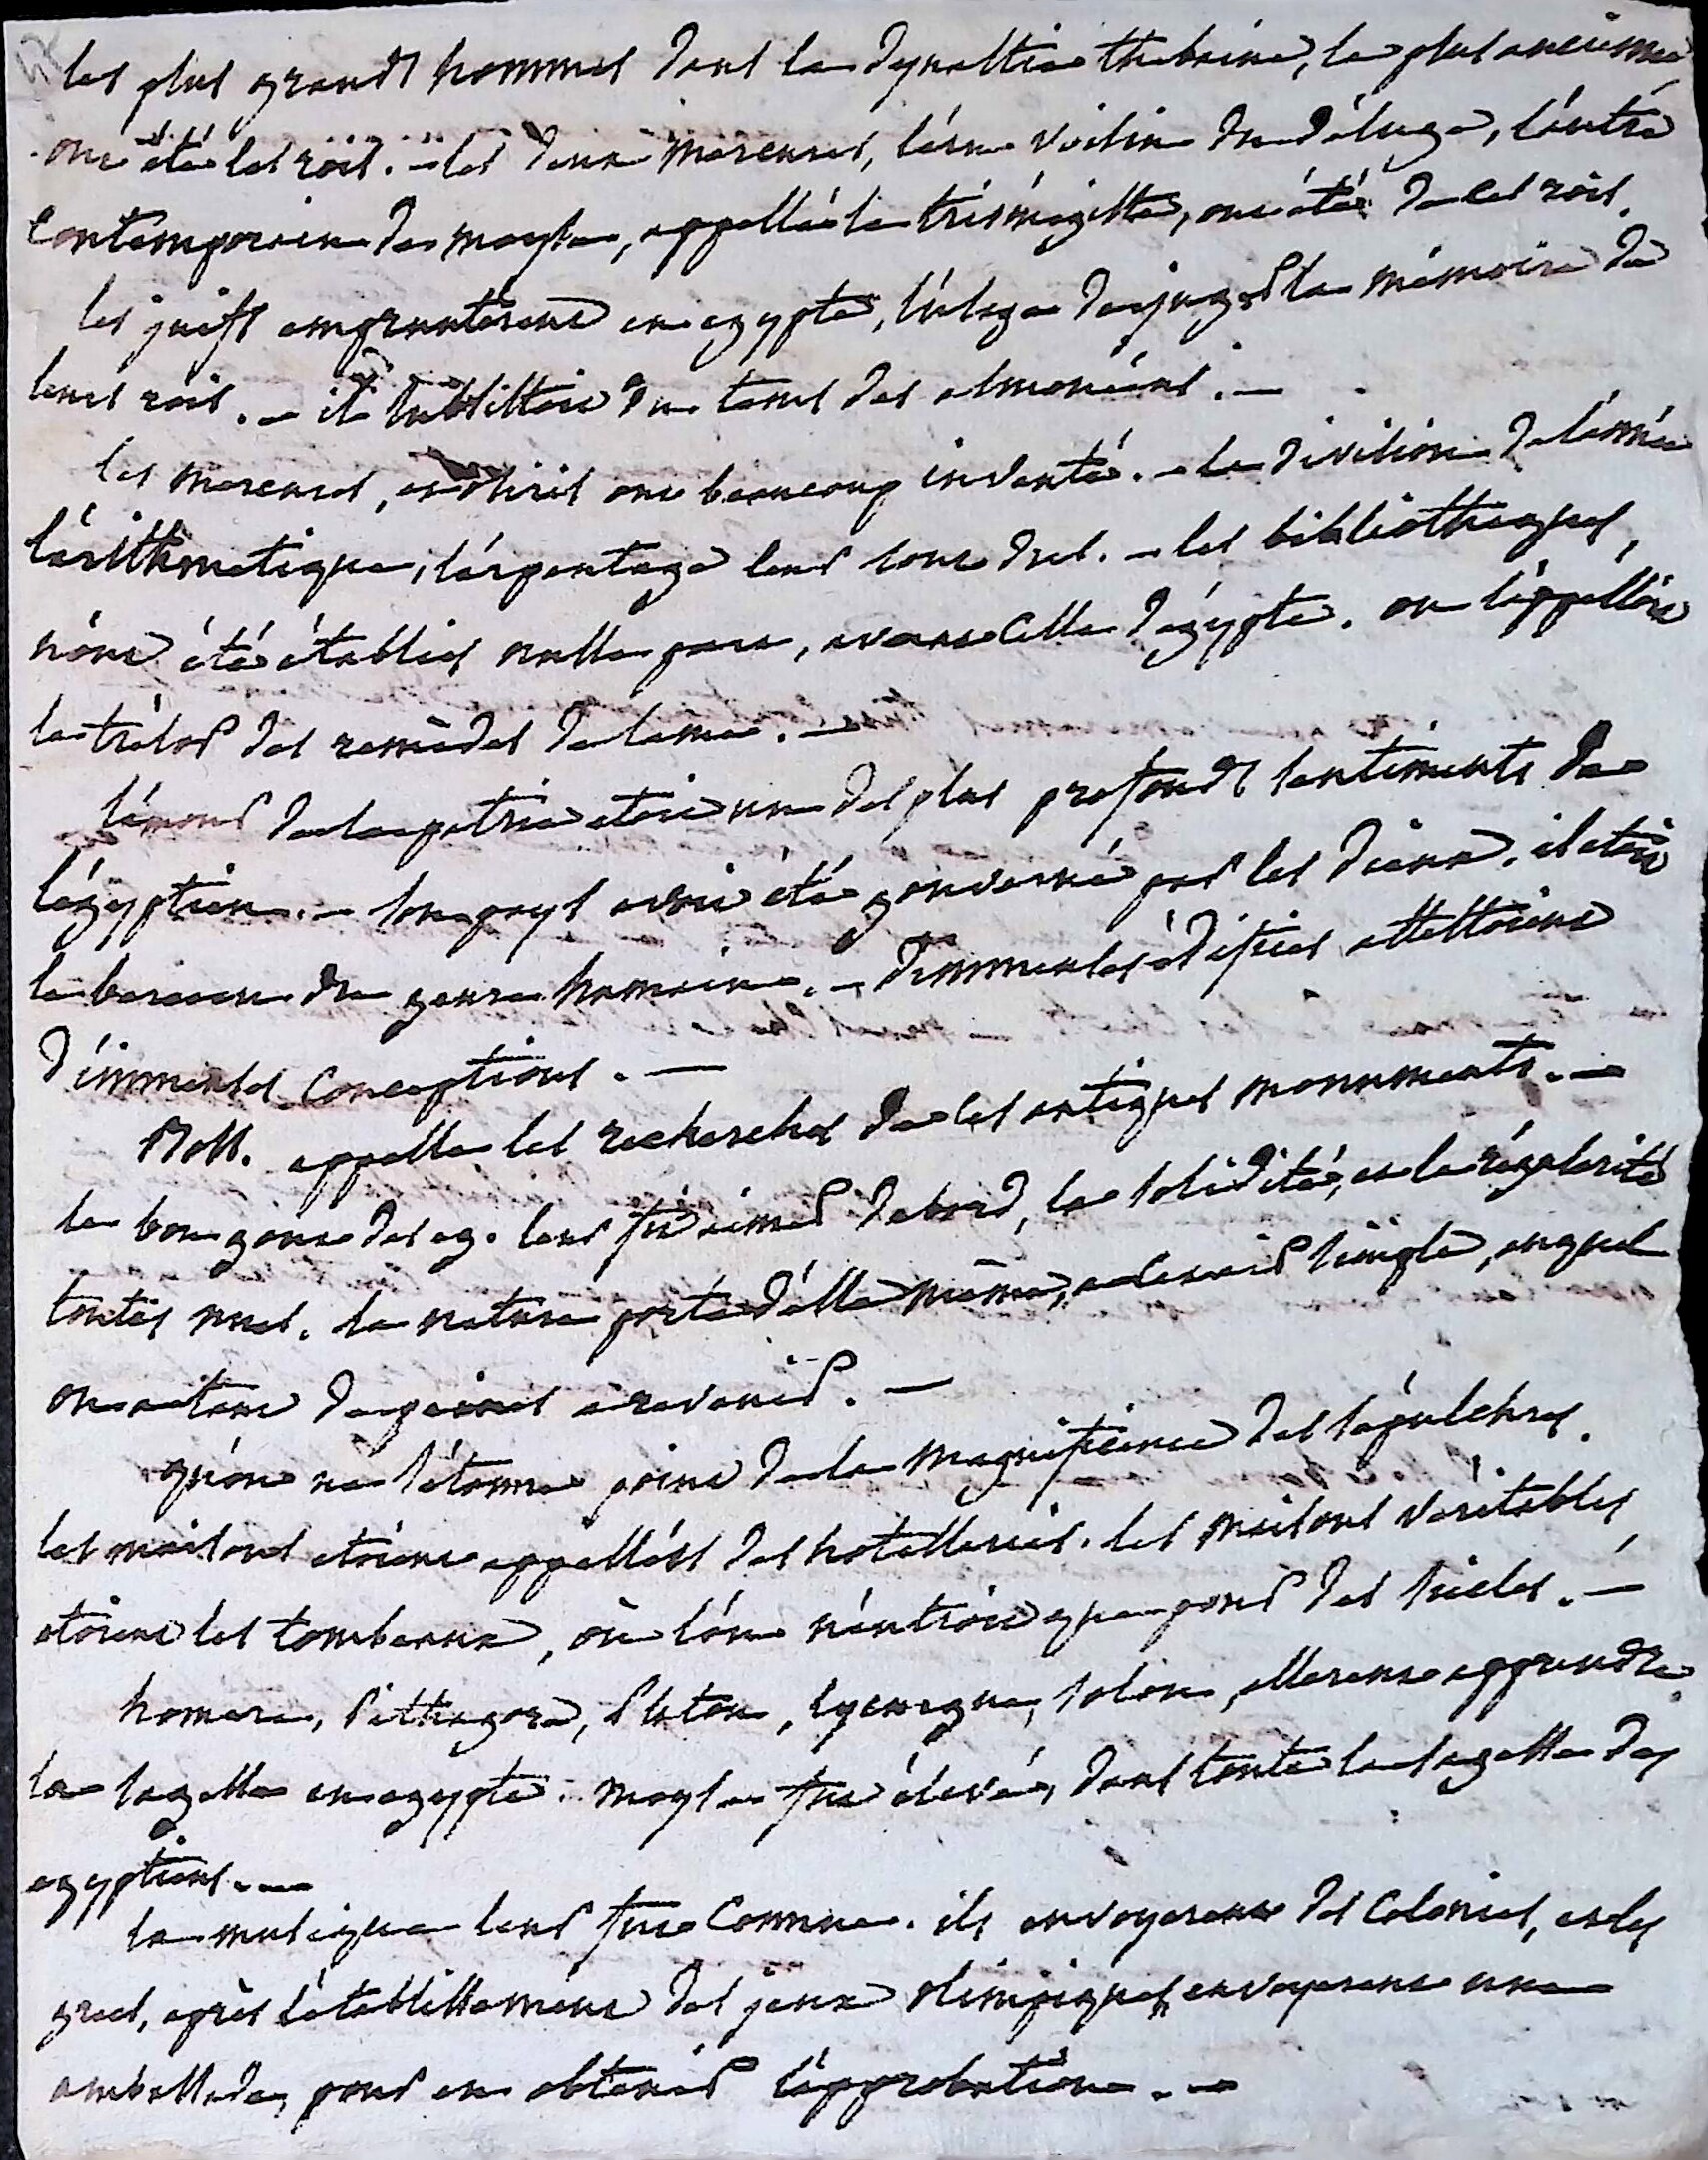 les plus grands hommes dans la dynastie thebaine, la plus ancienne
ont été les rois. – les deux mercures, l'un voisin du déluge, l'autre
contemporain de moyse, appellé le trismégiste, ont été de ces rois.
les juifs emprunterent en egypte, l'usage de juger la mémoire de
leurs rois. – il subsistoit du tems des asmonéens. –
les mercures, et osiris ont beaucoup inventé. – la division de l'année
l'arithmetique, l'arpentage leur sont dus. – les bibliotheques,
n'ont été établies nulle part, avant celle d'égypte. on l'appelloit
le trésor des remèdes de l'ame. –
l'amour de la patrie etoit un des plus profonds sentiments de
l'égyptien. – son pays avoit été gouverné par les dieux. il etoit
le berceau du genre humain. – d'immenses édifices attestoient
d'immenses conceptions. –
Boss. appelle les recherches de ces antiques monuments. –
le bon goût des eg. leur fit aimer d'abord, la solidité, et la régularité
toutes nues. la nature porte d'elle même, à cet air simple, auquel
on a tant de peines a revenir. –
qu'on ne s'étonne point de la magnificence des sépulchres.
les maisons etoient appellées des hotelleries. les maisons véritables
etoient les tombeaux, où l'on n'entroit que pour des siecles. –
homere, Pithagore, Platon, lycurgue, solon, allerent apprendre
la sagesse en egypte. moyse fut élevé, dans toute la sagesse des
egyptiens. –
la musique leur fut connue. ils envoyerent des colonies, et les
grecs, après l'établissement des jeux olimpiques, envoyerent une
ambassade, pour en obtenir l'approbation. –